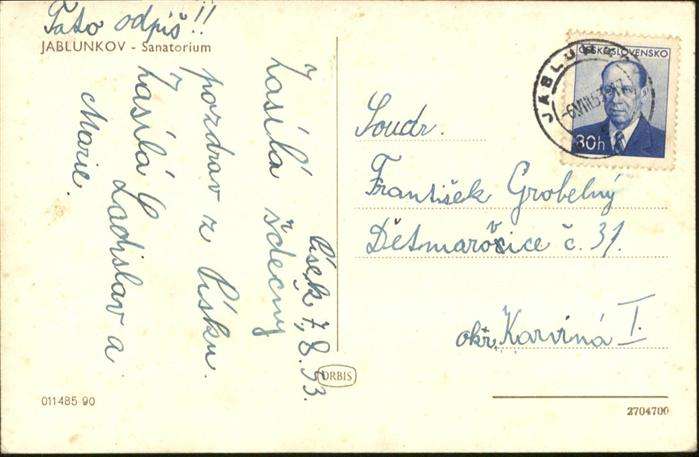 Tato odpiš!!
JABLUNKOV - Sanatorium
Písek 7.8.53.
Zasílá srdečný
pozdrav z Písku.
Zasílá Ladislav a
Marie.
ČESKOSLOVENSKO
30h
JABLUNKOV
Soudr.
František Grobelný
Dětmarovice č. 31.
okr. Karviná I.
ORBIS
011485 90
2704700